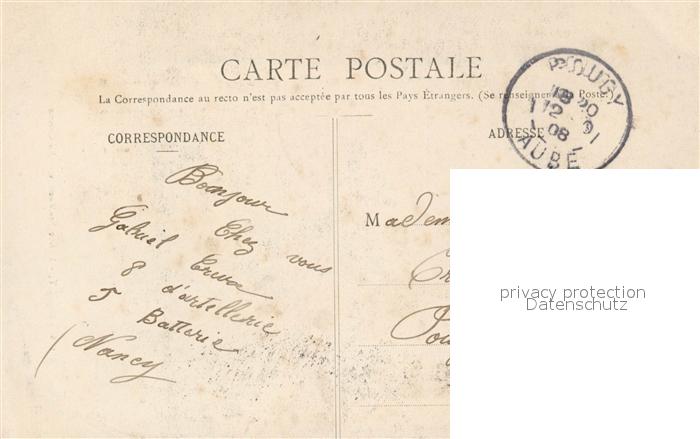 CARTE POSTALE
La Correspondance au recto n'est pas acceptée par tous les Pays Étrangers. (Se renseigner à la Poste.)
CORRESPONDANCE
ADRESSE
18 20
12 - 1
08
AUBE
Bonjour
Chez vous
Gabriel
8 d'artellerie
5 Batterie
(Nancy
Madem
privacy protection
Datenschutz